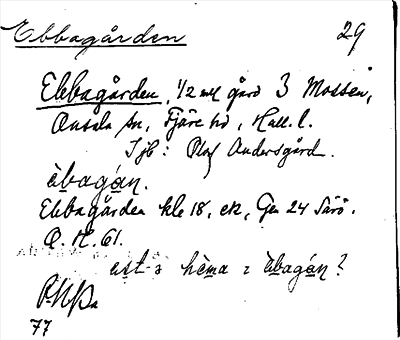 Ebbagården 29
Ebbagården, 1/2 mtl gård 3 Mossen,
Onsala sn, Fjäre hd, Hall. l.
Tjb: Olof Andersgård.
èbagán.
Ebbagården kle 18, ek, Gen 24 Särö.
O. H. 61.
hèma èbagán?
77